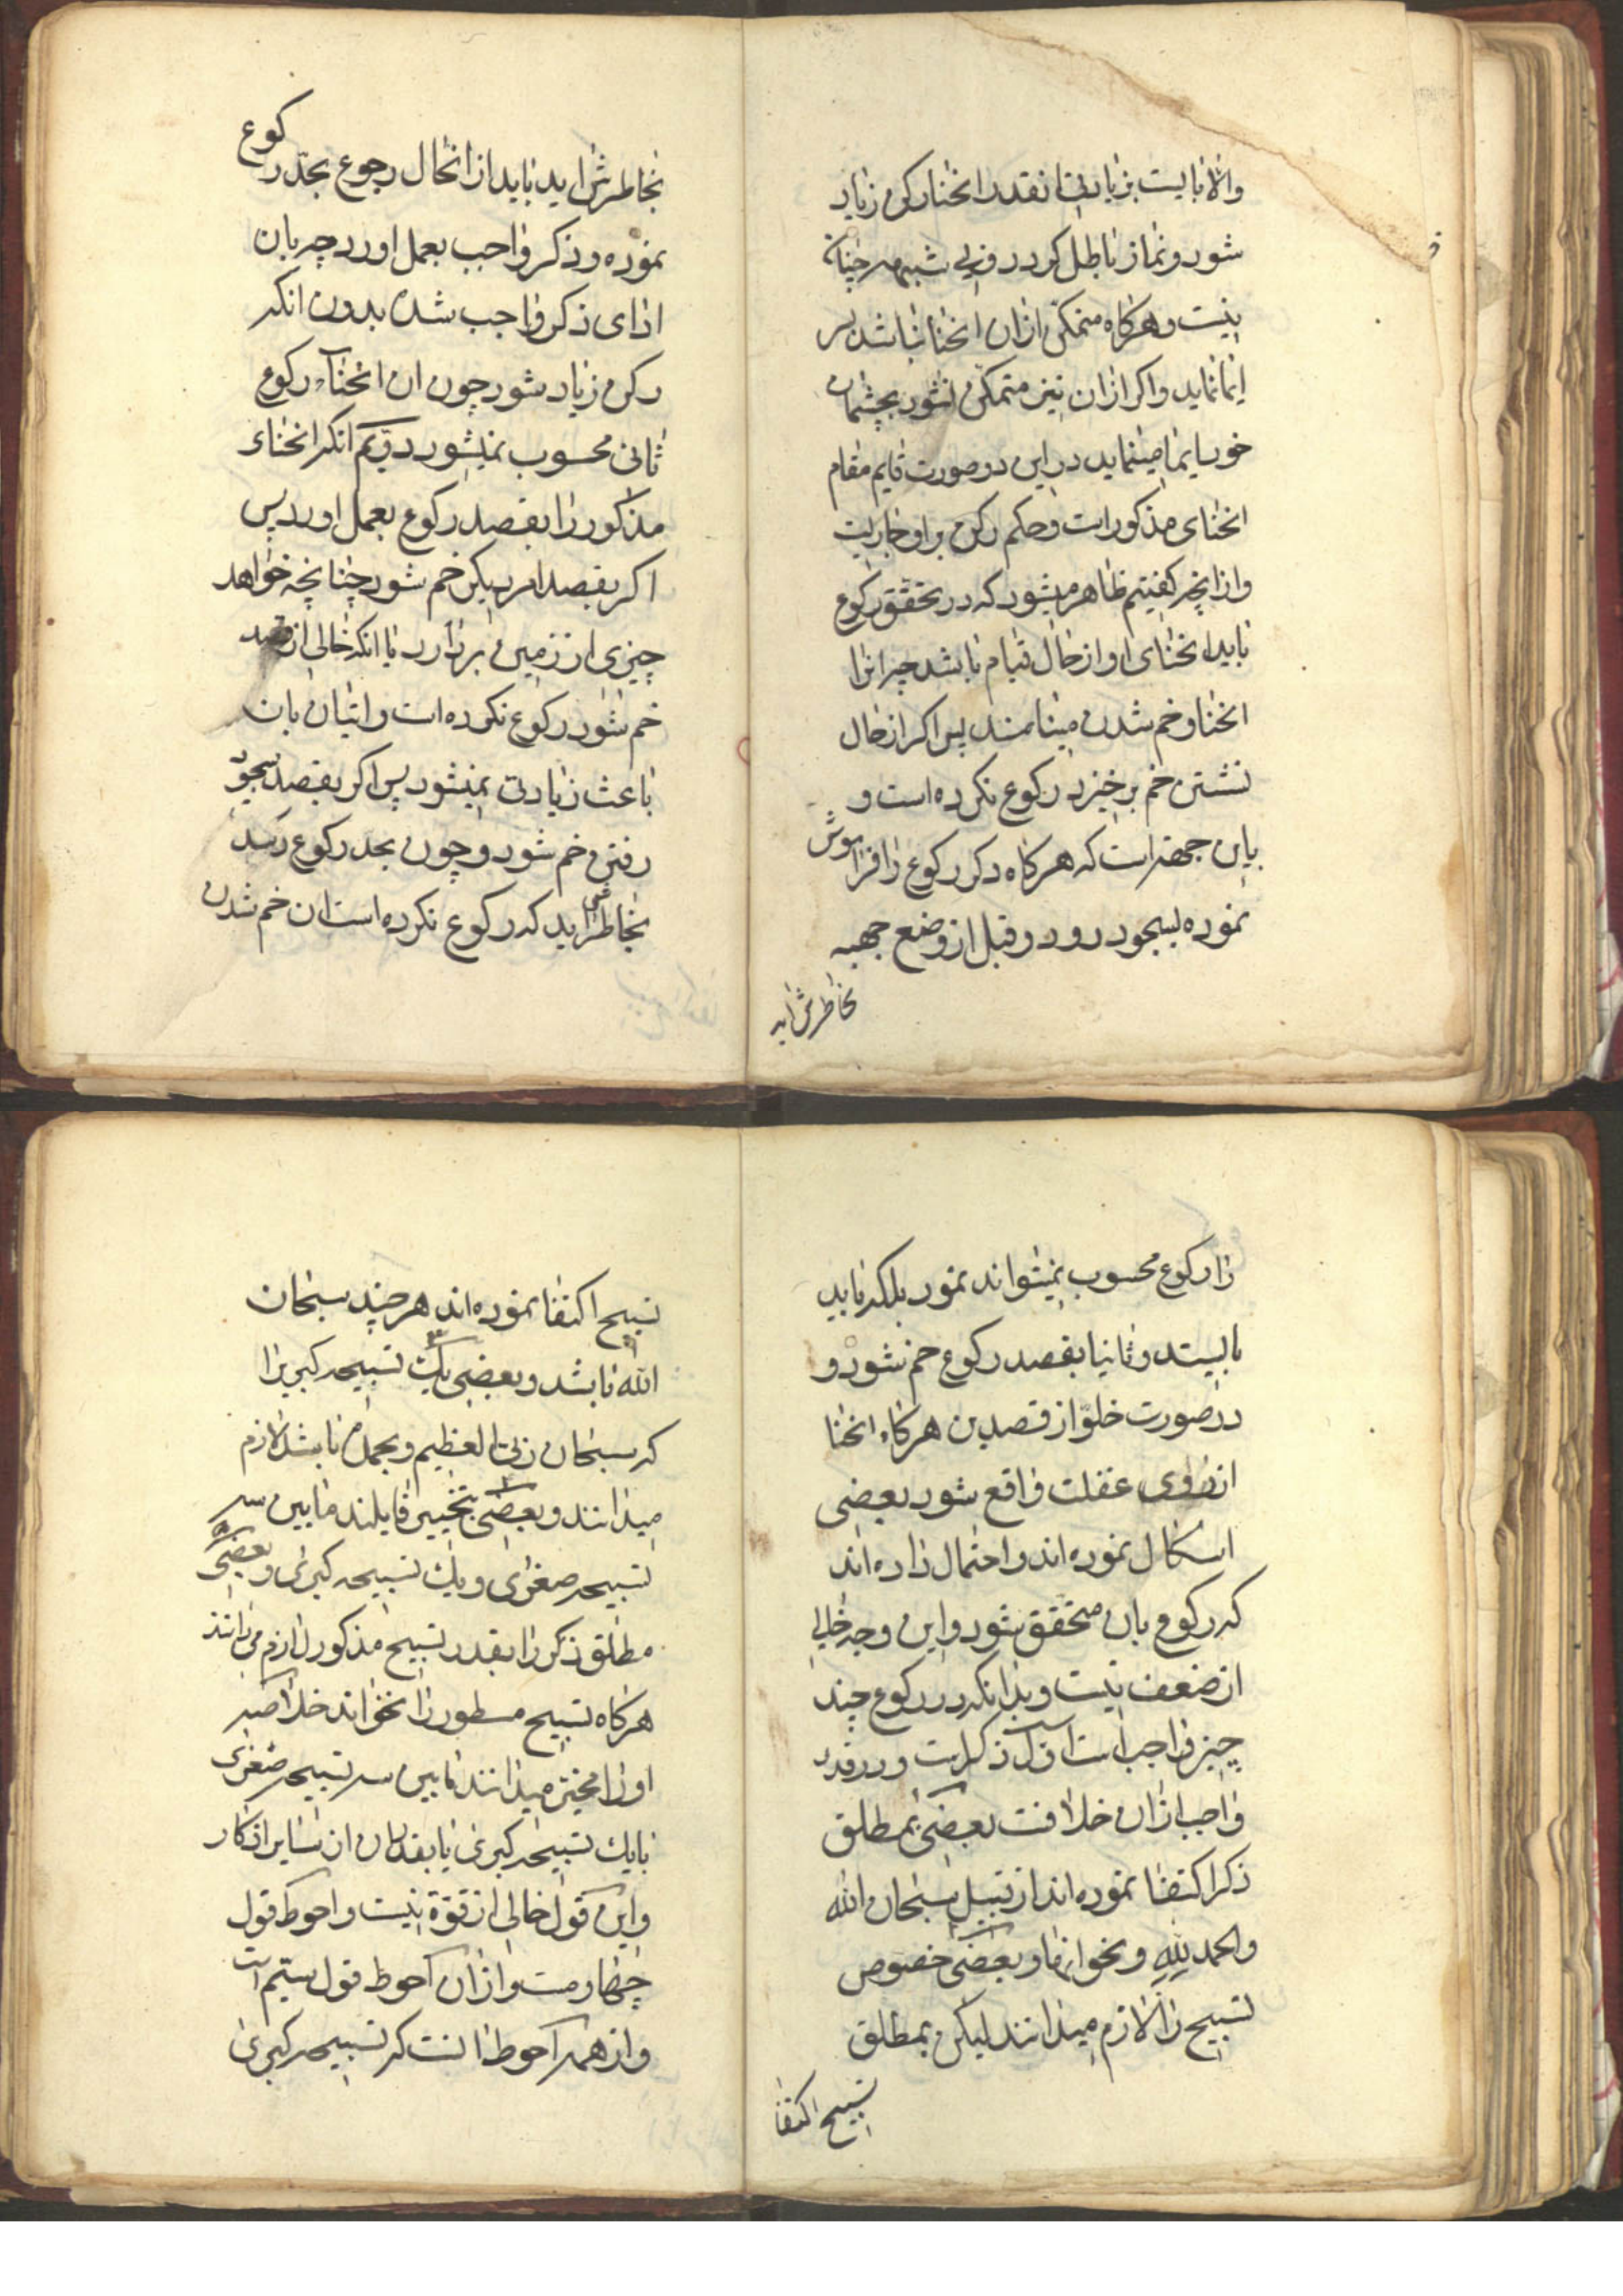 والا بایست بزیادتی انقدر انحنا رکن زیاد
شود و نماز باطل کردد و فی شبهه چنانه
نیست و هرکاه متمکن ازان انحنا نباشد بسر
ایما نماید و اکر ازان نیز متمکن نشود بچشمان
خود ایما مینماید در این دو صورت قایم مقام
انحنای مذکور است و حکم رکن بر او جاریست
و از انچه کفتیم ظاهر میشود که در تحقق رکوع
باید انحنای او از حال قیام باشد چه انرا
انحنا و خم شدن مینامند پس اکر از حال
نشستن خم برخیزد رکوع نکرده است و
باین جهة است که هرکاه ذکر رکوع را فراموش
نموده بسجود رود و قبل از وضع جبهه
بخاطرش اید
بخاطرش اید باید از انحال رجوع بحد رکوع
نموده و ذکر واجب بعمل اورد چه بان
ادای ذکر واجب شده بدون انکه
رکن زیاد شود چون ان انحنآء رکوع
ثانی محسوب نمیشود دویم انکه انحناء
مذکور را بقصد رکوع بعمل اورد پس
اکر بقصد امر دیکر خم شود چنانچه خواهد
چیزی از زمین بردارد یا انکه خالی از قصد
خم شود رکوع نکرده است و اتیان بان
باعث زیادتی نمیشود پس اکر بقصد سجود
رفتن خم شود و چون بحد رکوع رسد
بخاطرش اید که رکوع نکرده است ان خم شدن
را رکوع محسوب نمیتواند نمود بلکه باید
بایستد و ثانیا بقصد رکوع خم شود و
در صورت خلو از قصدین هرکاه انحنا
از روی غفلت واقع شود بعضی
اشکال نموده اند و احتمال داده اند
که رکوع بان متحقق شود و این وجه خالی
از ضعف نیست و بدانکه در رکوع چند
چیز واجب است اول ذکر است و در قدر
واجب ازان خلافست بعضی بمطلق
ذکر اکتفا نموده اند از قبیل سبحان الله
والحمد لله و نحو انها و بعضی خصوص
تسبیح را لازم میدانند لیکن بمطلق
تسبیح اکتفا
تسبیح اکتفا نموده اند هر چند سبحان
الله باشد و بعضی یک تسبیحه کبری را
که سبحان ربی العظیم و بحمده باشد لازم
میدانند و بعضی بتخییر قایلند مابین سه
تسبیحه صغری و یک تسبیحه کبری و بعضی
مطلق ذکر را بقدر تسبیح مذکور لازم میدانند
هرکاه تسبیح مسطور را نخواند خلاصه
او را مخیر میدانند مابین سه تسبیحه صغری
یا یک تسبیحه کبری یا بقدر ان از سایر اذکار
و این قول خالی از قوة نیست و احوط قول
چهارمست و ازان احوط قول سیم است
و از همه احوط انست که تسبیحه کبری